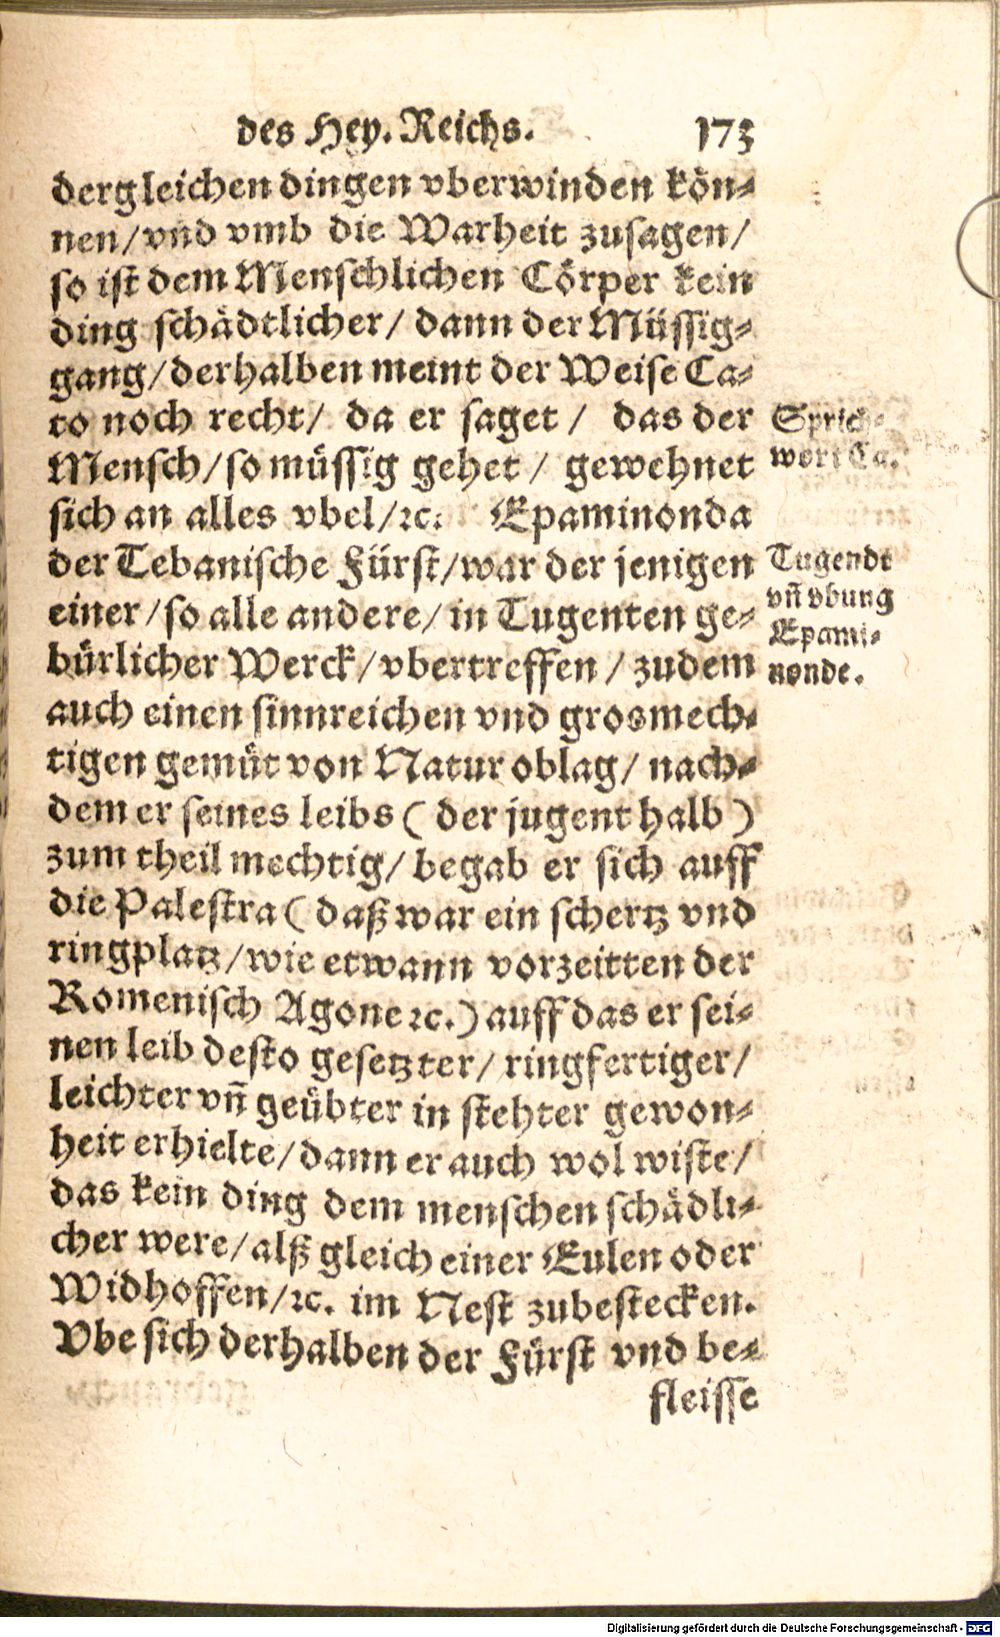 des Hey. Reichs. 173
dergleichen dingen vberwinden kön⸗
nen/vnd vmb die Warheit zusagen/
so ist dem Menschlichen Cörper kein
ding schädtlicher/ dann der Müssig⸗
gang/derhalben meint der Weise Ca⸗
to noch recht/ da er saget / das der
Mensch/so müssig gehet / gewehnet
sich an alles vbel/ꝛc. Epaminonda
der Tebanische Fürst/war der jenigen
einer/so alle andere/ in Tugenten ge⸗
bürlicher Werck/vbertreffen / zudem
auch einen sinnreichen vnd grosmech⸗
tigen gemüt von Natur oblag/ nach⸗
dem er seines leibs ( der jugent halb )
zum theil mechtig/ begab er sich auff
die Palestra ( daß war ein schertz vnd
ringplatz/wie etwann vorzeitten der
Romenisch Agone ꝛc.) auff das er sei⸗
nen leib desto gesetzter/ ringfertiger/
leichter vñ geübter in stehter gewon⸗
heit erhielte/dann er auch wol wiste/
das kein ding dem menschen schädli⸗
cher were/alß gleich einer Eulen oder
Widhoffen/ꝛc. im Nest zubestecken.
Vbe sich derhalben der Fürst vnd be⸗
fleisse
Sprich⸗
wort Ca.
Tugendt
vñ vbung
Epami⸗
nonde.
Digitalisierung gefördert durch die Deutsche Forschungsgemeinschaft - DFG